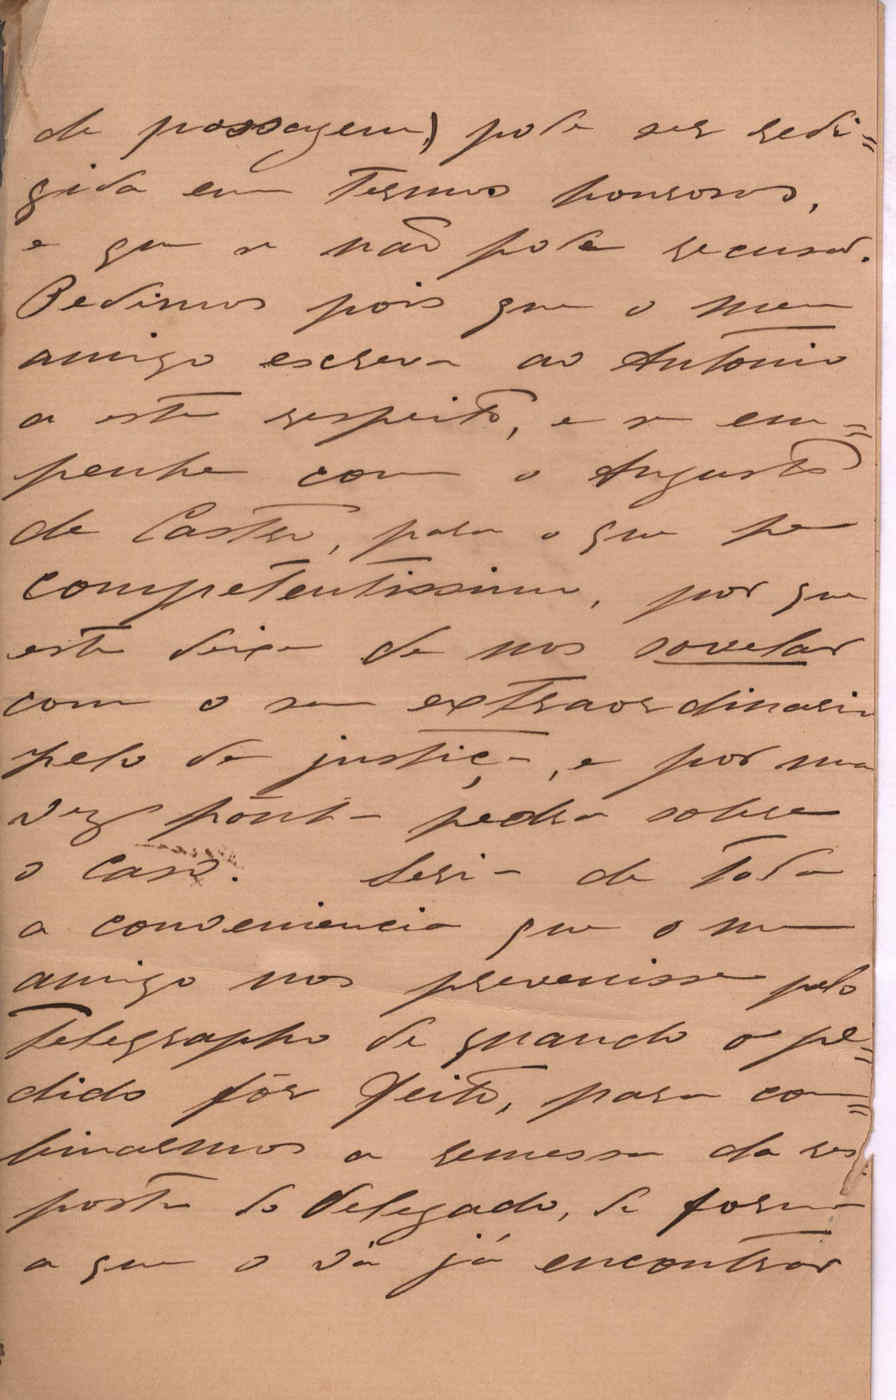 de passagem) pode ser redi=
gida em termos honrosos,
e que se não pode recusar.
Pedimos pois que o meu
amigo escreva ao Antonio
a este respeito, e se em=
penhe com o Augusto
de Castro, para o que he
competentissimo, por que
este deixe de nos sovelar
com o seu extraordinario
zelo de justiça, e por uma
vez ponha pedra sobre
o caso. Seria de toda
a conveniencia que o meu
amigo nos prevenisse pelo
telegrapho de quando o pe=
dido fôr feito, para com=
binarmos a remessa da res
posta do delegado, de forma
a que o vá já encontrar